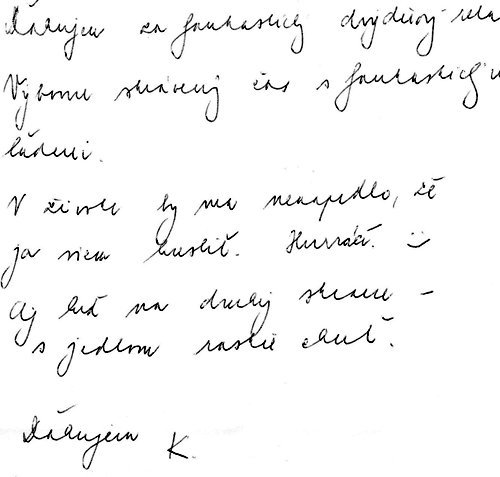 Ďakujem za fantastický dvojdňový rela
Výborne strávený čas s fantastickým
ľuďmi.
V živote by ma nenapadlo, že
ja viem kresliť. Hurráá. :)
Aj keď na druhej strane –
s jedlom rastie chuť.
Ďakujem K.